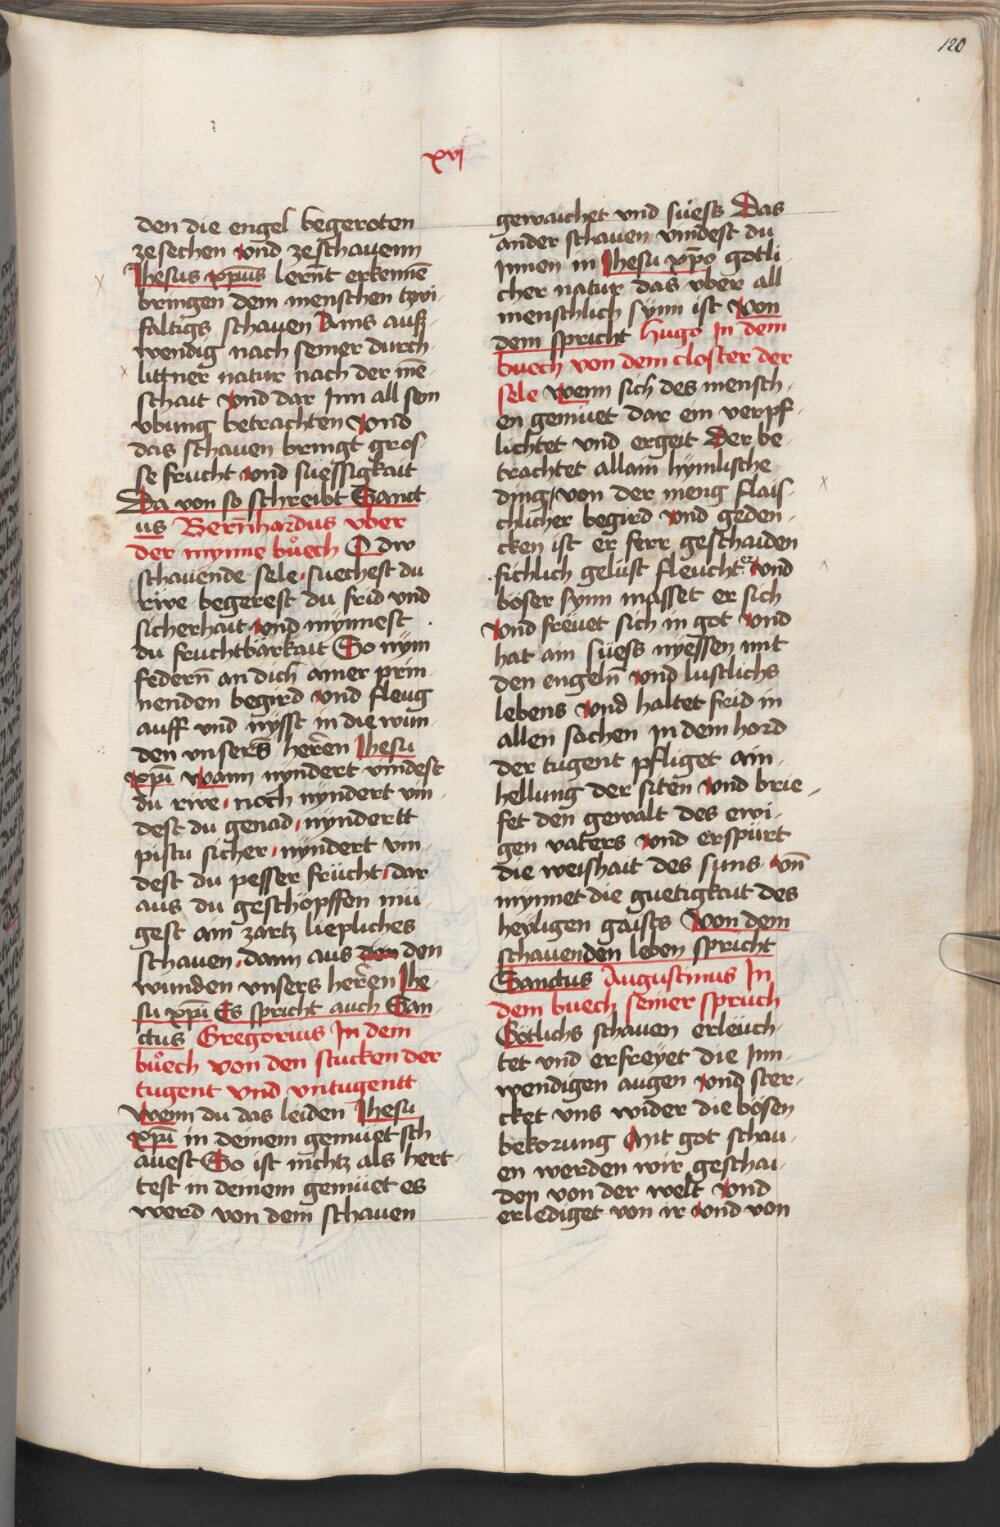 120
xvj
den die engel begeroten
zesechen vnd zeschauenn
Jhesus xp̄us lernt erkennē
bringen dem menschen tzwi-
faltigs schauen Ains auß-
wendig nach seiner durch-
littner natur nach der mē-
schait vnd dar Jnn all sein
vbung betrachten vnd
das schauen bringt gros-
se frucht vnd süessigkait
Da von so schreibt Sanct-
us Bern̄hardus vber
der mynne bůech O dw
schauende sele suechest du
rwe begerest du frid vnd
sicherhait vnd mynnest
du fruchtbarkait So nym
federn̄ an dich ainer prin-
nenden begird vnd fleug
auff vnd nysst in die wun-
den vnsers herren Jhesu
xp̄i Wann nyndert vindest
du rwe noch nyndert vin-
dest du genad nyndertt
pistu sicher nyndert vin-
dest du pesser frücht dar
aus du geschöpffen mü-
gest ain zartz liepliches
schauen dann aus den den
wunden vnsers herren Jhe-
su xp̄i Es spricht auch San-
ctus Gregorius Jn dem
bůech von den stucken der
tugent vnd vntugentt
Wenn du das leiden Jhesu
xp̄i in deinem gemuet sch-
auest So ist nichtz als hert-
test in deinem gemüet es
werd von dem schauen
gewaichet vnd süess Das
ander schauen vindest du
Jnnen in Jhesu xp̄o gotli-
cher natur das vber all
menschlich synn ist Von
dem spricht Hugo Jn dem
buech von dem closter der
sele Wenn sich des mensch-
en gemuet dar ein verpf-
lichtet vnd ergeit Der be-
trachtet allain hymlische
ding von der meng flais-
chlicher begird vnd geden-
cken ist er ferr geschaiden
fichlich gelüst fleucht er vnd
böser synn masset er sich
vnd freuet sich in got vnd
hat ain süess nyessen mit
den engeln̄ vnd lustlichs
lebens vnd haltet frid in
allen sachen Jn dem hord
der tugent pfliget ain-
hellung der siten vnd brie-
fet den gewalt des ewi-
gen vaters vnd erspürt
die weishait des suns vn̄
mynnet die guetigkait des
heyligen gaists Von dem
schauenden leben spricht
Sanctus Augustinus Jn
dem buech seiner spruch
Götlichs schauen erleuch-
tet vnd erfreyet die Jnn-
wendigen augen vnd ster-
cket vns wider die bösen
bekorung Mit got schau-
en werden wir geschai-
den von der welt vnd
erlediget von ir vnd von